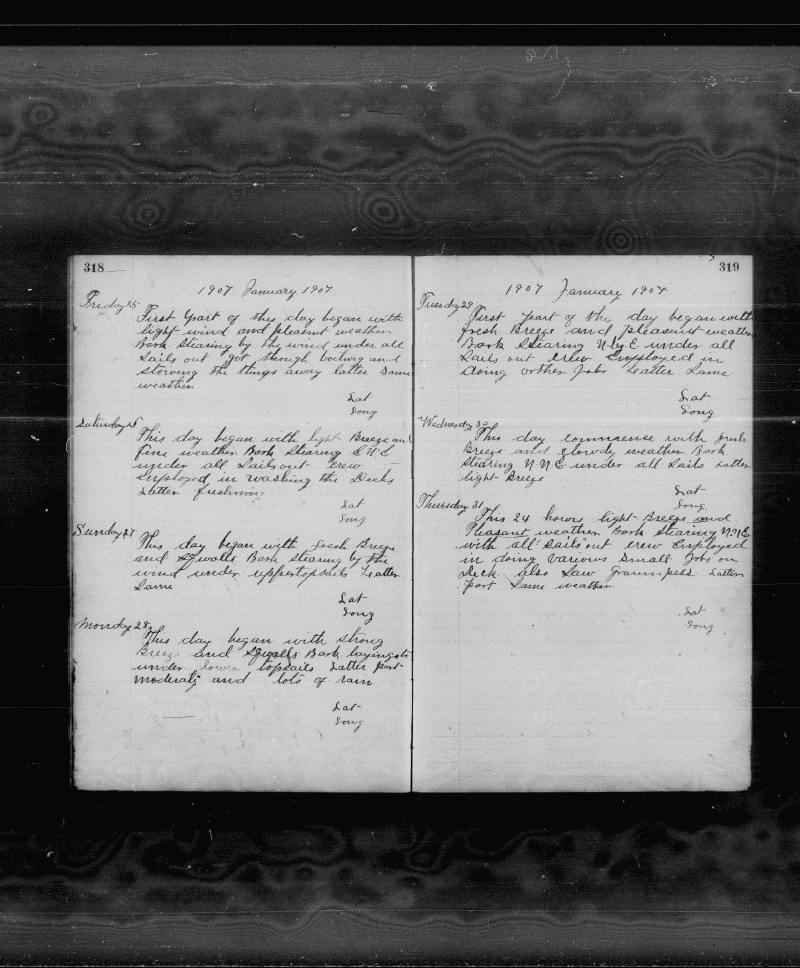 318
1907 January 1907
Friday 25
First part of this day began with
light wind and pleasant weather
Bark Stearing by the wind under all
Sails out got through boiling and
stowing the things away latter Same
weather
Lat
Long
Saturday 26
This day began with light Breeze and
fine weather Bark Stearing
under all Sails out crew
Employed in washing the Decks
Latter freshning
Lat
Long
Sunday 27
This day began with fresh Breeze
and Squalls Bark Stearing by the
wind under uppertopsails Latter
Same
Lat
Long
Monday 28
This day began with strong
Breeze and Squalls Bark laying to
under lower topsails Latter part
moderatly and lots of rain
Lat
Long
319
1907 January 1907
Tuesday 29
First part of the day began with
fresh Breeze and pleasant weather
Bark Stearing N by E under all
Sails out Crew Employed in
doing orther Jobs Latter Same
Lat
Long
Wednesday 30
This day commence with fresh
Breeze and clowdy weather Bark
Stearing N N E under all Sails Latter
light Breeze
Lat
Long
Thursday 31
This 24 hours light Breeze and
Pleasant weather Bark Stearing N.N.E
with all Sails out crew Employed
in doing various small Jobs on
Deck also Saw Latter
part Same weather
Lat
Long